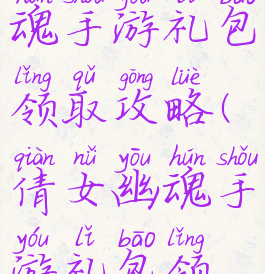 魂手游礼包
lǐng qǔ gōng lüè
领取攻略(
qiàn nǚ yōu hún shǒu
倩女幽魂手
yóu lǐ bāo lǐng
游礼包领